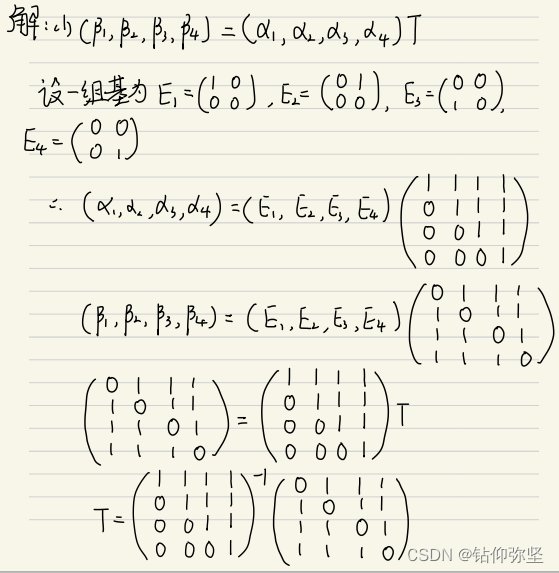 解:(1) (β₁, β₂, β₃, β₄) = (α₁, α₂, α₃, α₄) T
设一组基为 E₁ = (1 0; 0 0), E₂ = (0 1; 0 0), E₃ = (0 0; 1 0),
E₄ = (0 0; 0 1)
∴ (α₁, α₂, α₃, α₄) = (E₁, E₂, E₃, E₄) (1 1 1 1; 0 1 1 1; 0 0 1 1; 0 0 0 1)
(β₁, β₂, β₃, β₄) = (E₁, E₂, E₃, E₄) (0 1 1 1; 1 0 1 1; 1 1 0 1; 1 1 1 0)
(0 1 1 1; 1 0 1 1; 1 1 0 1; 1 1 1 0) = (1 1 1 1; 0 1 1 1; 0 0 1 1; 0 0 0 1) T
T = (1 1 1 1; 0 1 1 1; 0 0 1 1; 0 0 0 1)⁻¹ (0 1 1 1; 1 0 1 1; 1 1 0 1; 1 1 1 0)
CSDN @钻仰弥坚